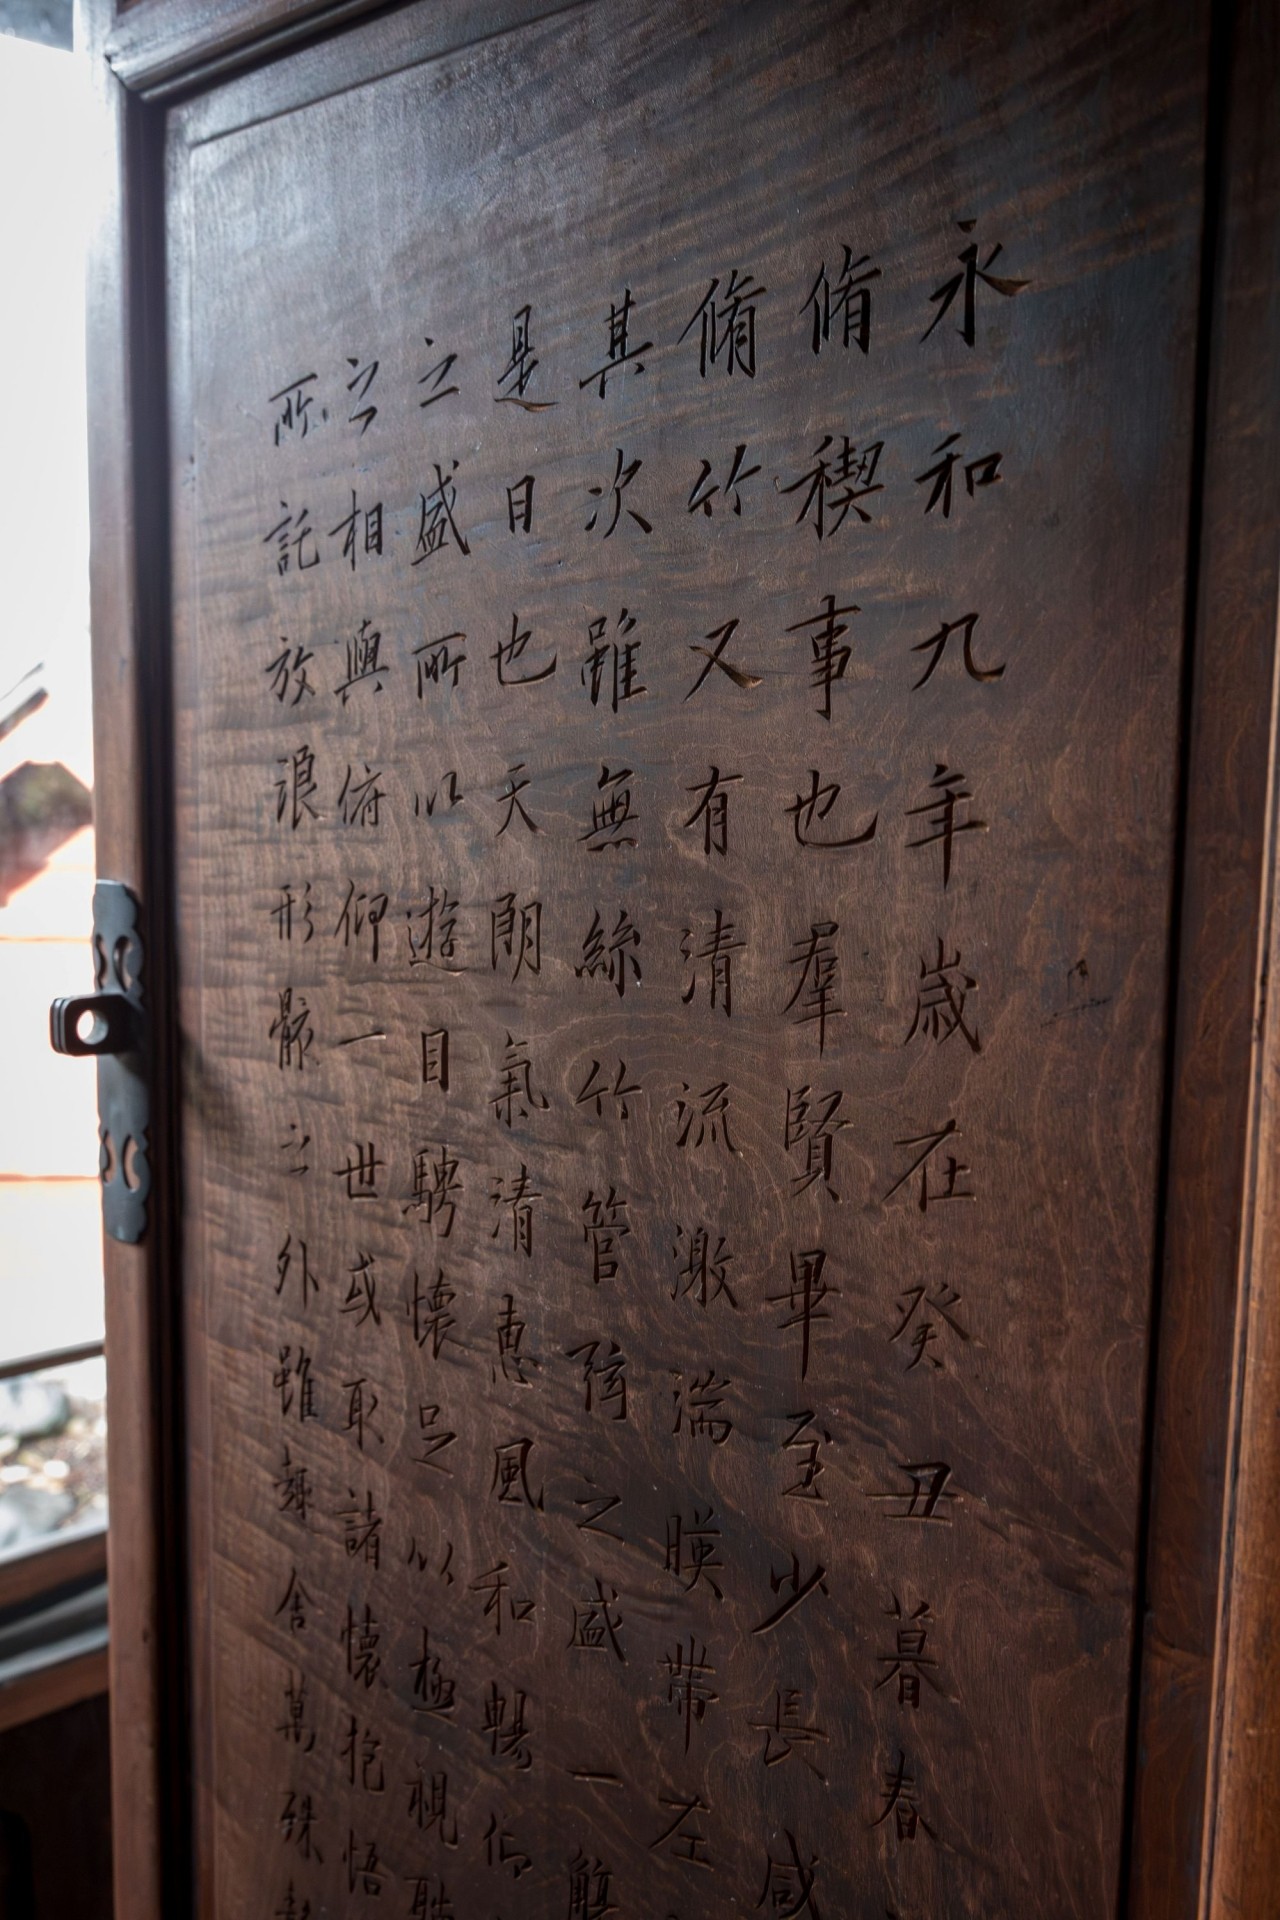 永和九年歳在癸丑暮春
脩禊事也羣賢畢至少長咸
脩竹又有清流激湍暎帶左
其次雖無絲竹管弦之盛一觴
是日也天朗氣清惠風和暢仰
之盛所以遊目騁懷足以極視聽
之相與俯仰一世或取諸懷抱悟
所託放浪形骸之外雖趣舍萬殊